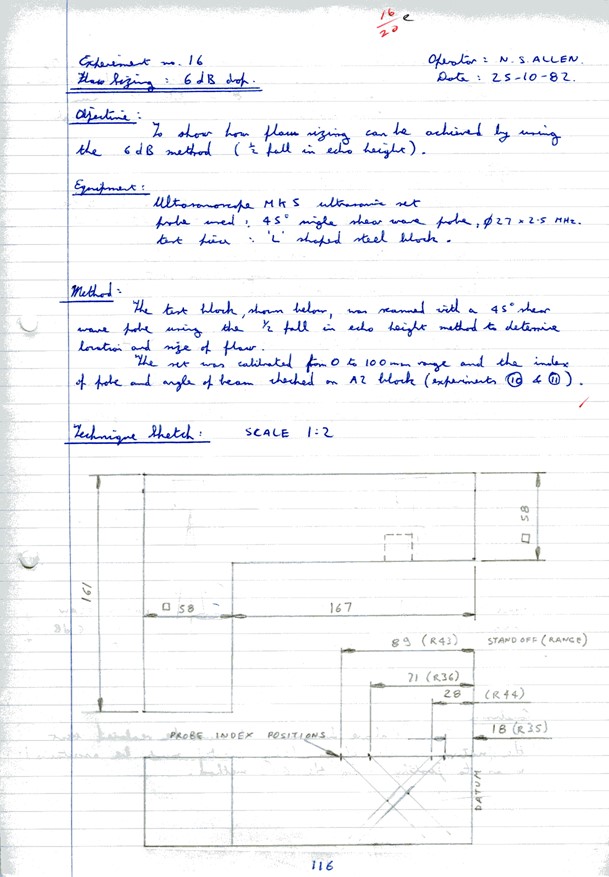 16
20
Experiment no. 16
Operator : N.S. ALLEN.
Flaw Sizing : 6 dB drop.
Date : 25-10-82.
Objective :
To show how flaw sizing can be achieved by using
the 6 dB method (½ fall in echo height).
Equipment :
Ultrasonoscope MKS ultrasonic set
probe used : 45° single shear wave probe, Ø27 x 2.5 MHz.
test piece : 'L' shaped steel block.
Method :
The test block, shown below, was scanned with a 45° shear
wave probe using the ½ fall in echo height method to determine
location and size of flaw.
The set was calibrated from 0 to 100 mm range and the index
of probe and angle of beam checked on A2 block (experiments ⑩ & ⑪).
Technique Sketch : SCALE 1:2
□ 58
161
□ 58
167
89 (R43) STANDOFF (RANGE)
71 (R36)
28 (R44)
18 (R35)
PROBE INDEX POSITIONS
DATUM
116